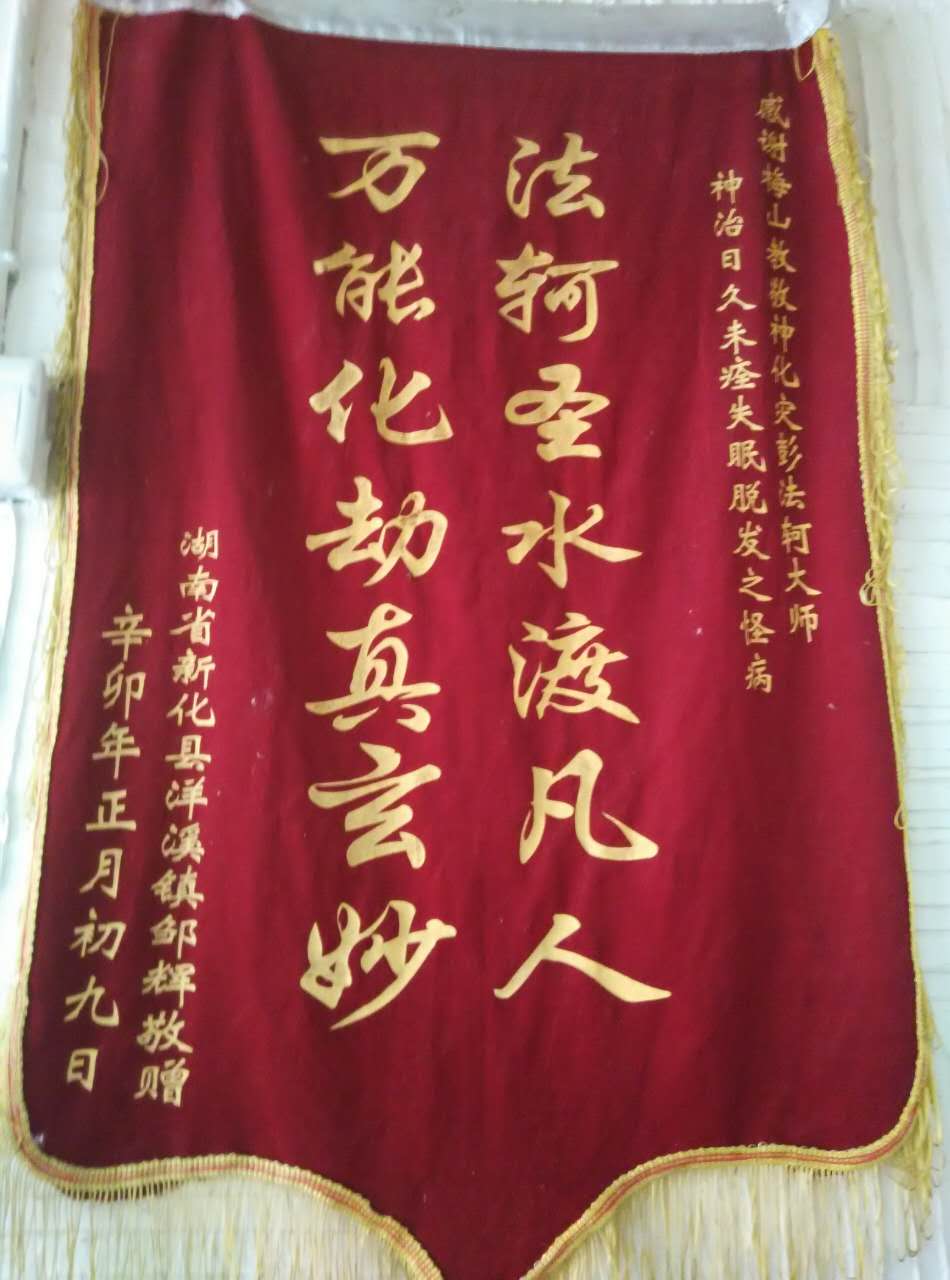 感谢梅山教敬神化灾彭法轲大师
神治日久未痊失眠脱发之怪病
法轲圣水渡凡人
万能化劫真玄妙
湖南省新化县洋溪镇邹辉敬赠
辛卯年正月初九日